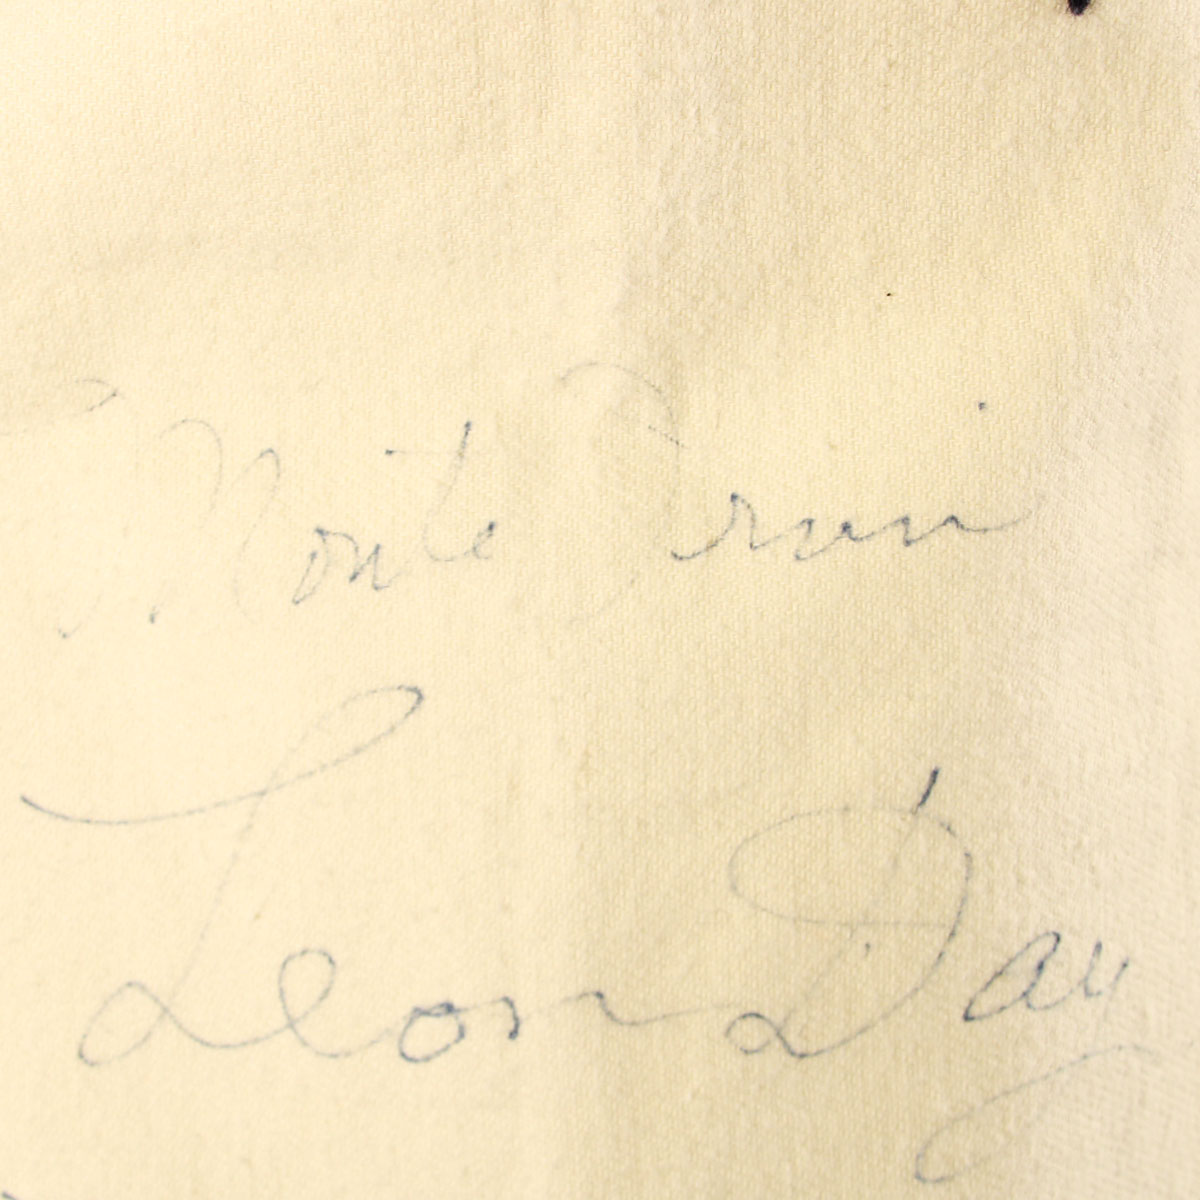 Monte Irvin
Leon Day